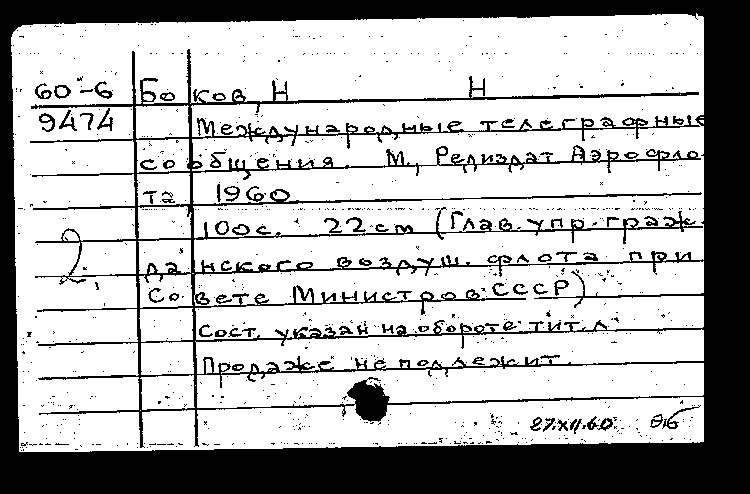 60-6 Боков, Н Н
9474 Международные телеграфные
сообщения. М., Редиздат Аэрофло-
та 1960
100с. 22 см (Глав. упр. граж-
2. данского воздуш. флота при
Совете Министров СССР)
Сост. указан на обороте тит. л.
Продаже не подлежит.
27.XII.60